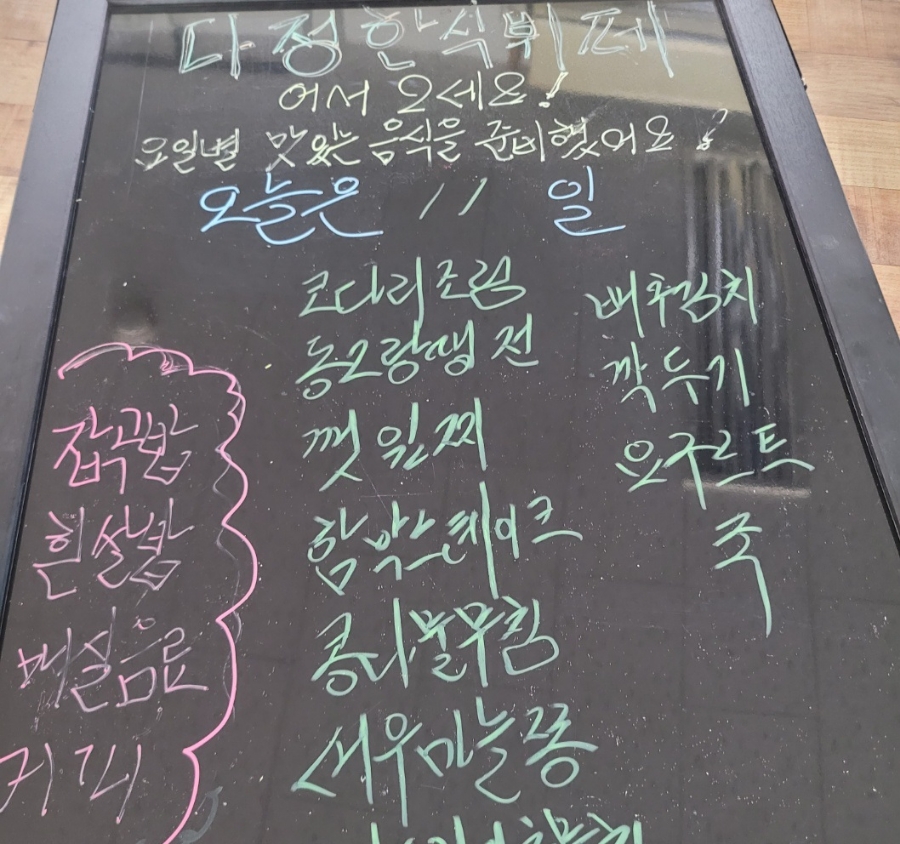 다정한식뷔페
어서 오세요!
요일별 맛있는 음식을 준비했어요!
오늘은 11 일
코다리조림
동그랑땡 전
깻잎찌
함박스테이크
콩나물무침
새우마늘쫑
배추김치
깍두기
요구르트
국
잡곡밥
흰쌀밥
매실음료
커피